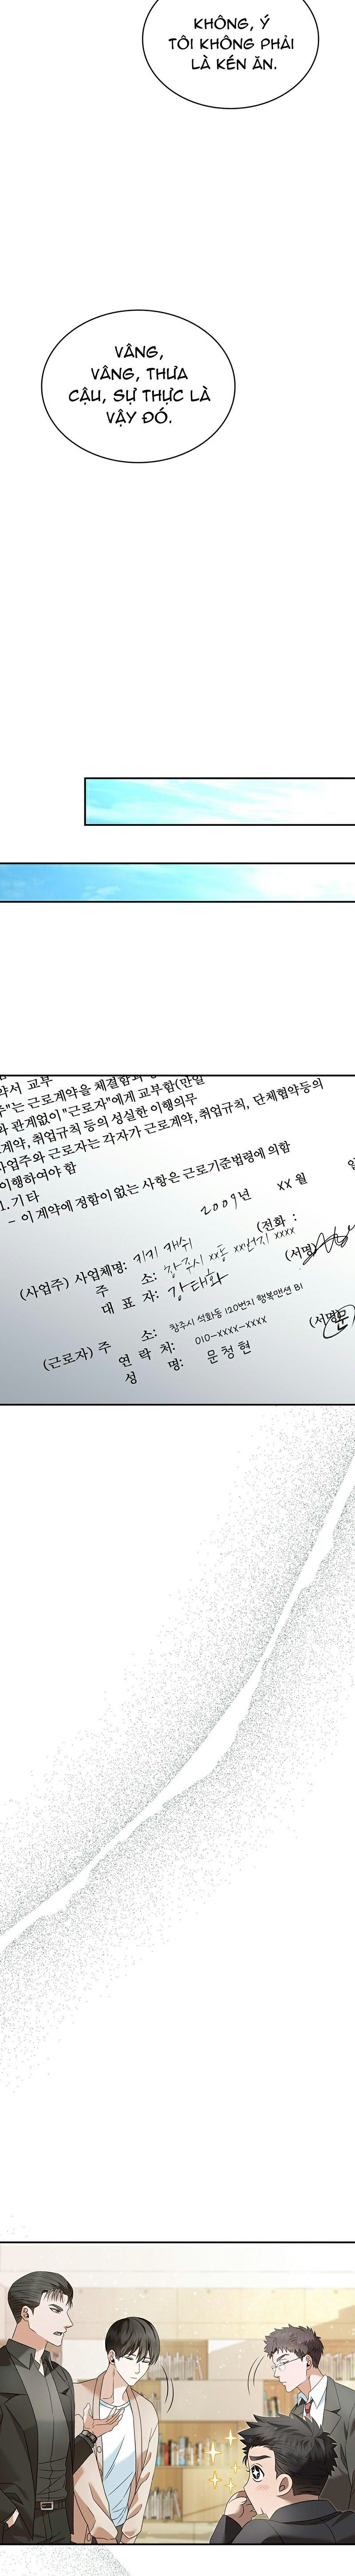 KHÔNG, Ý
TÔI KHÔNG PHẢI
LÀ KÉN ĂN.
VÂNG,
VÂNG, THƯA
CẬU, SỰ THỰC LÀ
VẬY ĐÓ.
약서 교부
"는 근로계약을 체결함과
와 관계없이 "근로자"에게 교부함(만일
계약, 취업규칙 등의 성실한 이행의무
사업주와 근로자는 각자가 근로계약, 취업규칙, 단체협약등의
이행하여야 함
1. 기 타
- 이 계약에 정함이 없는 사항은 근로기준법령에 의함
2009년 xx 월
(사업주) 사업체명: 키키 캐쉬 (전화 :
주 소: 창주시 xx동 xx번지 xxxx (서명)
대 표 자: 강태화
(근로자) 주 소: 창주시 석화동 120번지 행복맨션 B1
연 락 처: 010-xxxx-xxxx (서명)
성 명: 문청현